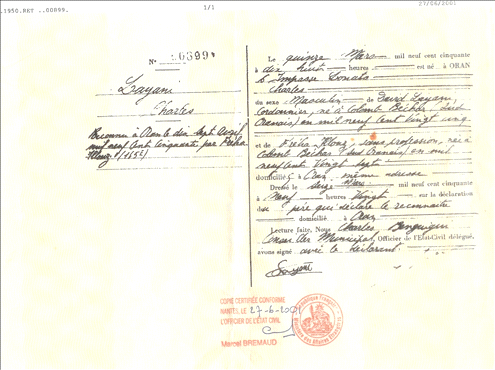 .1950.RET ..00899.
1/1
27/06/2001
N° 00899
Layani
Charles
Reconnu à Oran le dix sept Avril
mil neuf cent cinquante, par Fréha
Le quinze Mars mil neuf cent cinquante
à dix huit heures est né à ORAN
6 Impasse Donato
Charles
du sexe Masculin de David Layani
Cordonnier, né à Colomb Béchar, Sud
Oranais, en mil neuf cent vingt cinq
et de Fréha, sans profession, née à
Colomb Béchar (Sud Oranais) en mil
neuf cent vingt sept
domicilié à Oran, même adresse
Dressé le seize Mars mil neuf cent cinquante
à Neuf heures Vingt sur la déclaration
du père qui déclare le reconnaître
domicilié à Oran
Lecture faite, Nous Charles Benguigui
Municipal, Officier de l'Etat-Civil délégué,
avons signé avec le déclarant
COPIE CERTIFIÉE CONFORME
NANTES, LE 27-6-2001
L'OFFICIER DE L'ETAT CIVIL
Marcel BREMAUD